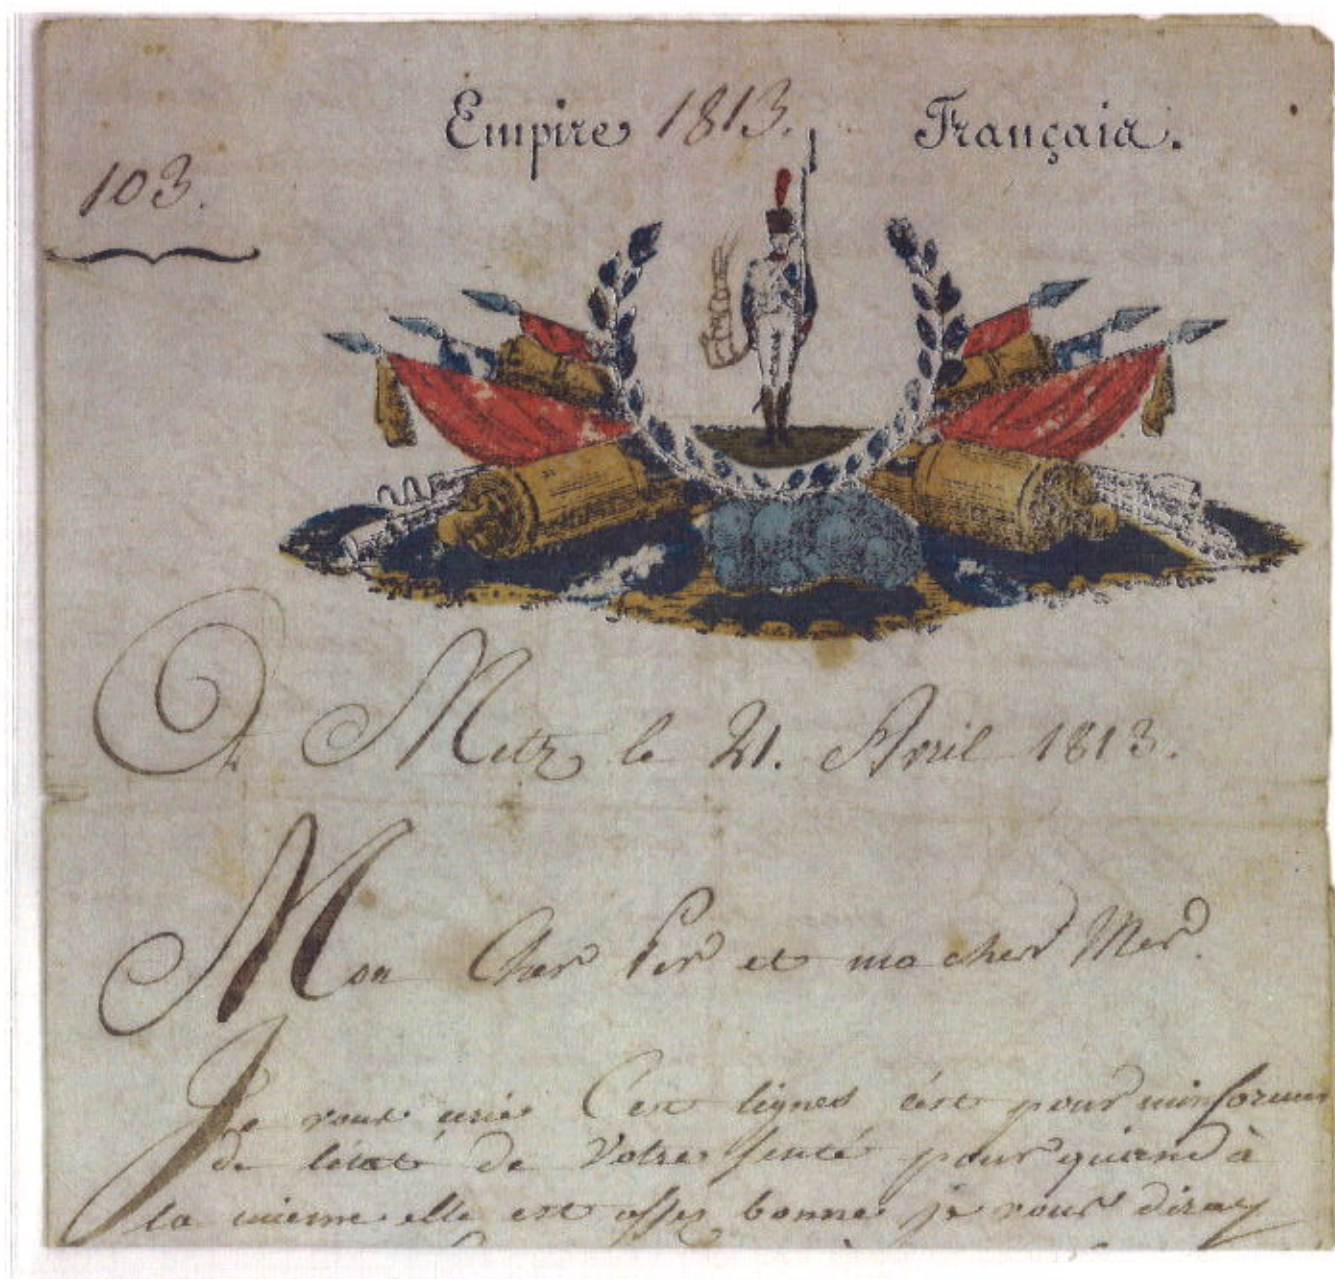 Empire 1813. Français.
103.
A Metz le 21. Avril 1813.
Mon Cher Per et ma cher Mer.
Je vous ecrie Cest lignes c'est pour minformer
de létat de Votre senté pour quiend à
la mienne elle est asses bonne je vous diray